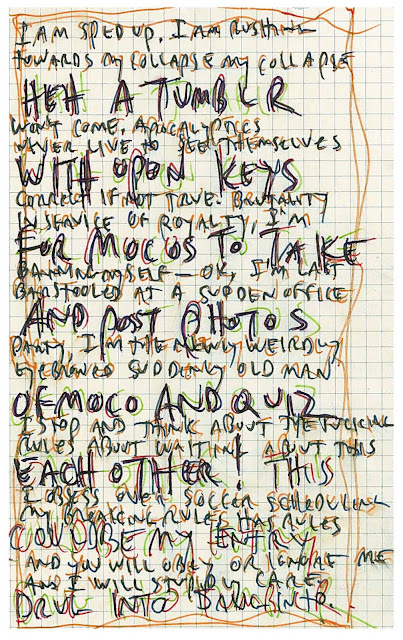 I AM SPED UP. I AM RUSHING
TOWARDS MY COLLAPSE MY COLLAPSE
HEH A TUMBLR
WON'T COME. APOCALYPTICS
NEVER LIVE TO SEE THEMSELVES
WITH OPEN KEYS
CORRECT IF NOT TRUE. BRUTALITY
IN SERVICE OF ROYALTY, I'M
FOR MOCOS TO TAKE
BANNING MYSELF — OK, I'M LAST
BARSTOOLED AT A SUDDEN OFFICE
AND POST PHOTOS
PARTY. I'M THE NEWLY WEIRDLY
EYEBROWED SUDDENLY OLD MAN
OF MOCO AND QUIZ
I STOP AND THINK ABOUT THE
RULES ABOUT WAITING ABOUT THIS
EACH OTHER! THIS
I OBSESS OVER SOCCER SCHEDULING
MY BREAKING RULES HAS RULES
COULD BE MY ENTRY
AND YOU WILL OBEY OR IGNORE ME
AND I WILL STUPIDLY CARE.
DRIVE INTO